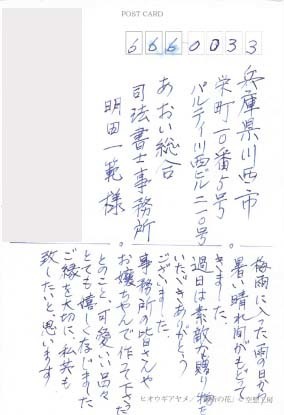 POST CARD
6660033
兵庫県川西市
栄町一〇番5号
パルティ川西ビル二一〇号
あおい総合
司法書士事務所
明田一範様
梅雨に入った雨の日から
暑い晴れ間がもどって
きました。
週日は素敵な贈り物
いただきありがとう
ございました。
事務所の皆さんや
お嬢ちゃんで作って下さった
とのこと、可愛いい品々
とても嬉しくなりました
ご縁を大切に、私共も
致したいと思います
ヒオウギアヤメ/
の花」© 空想工房